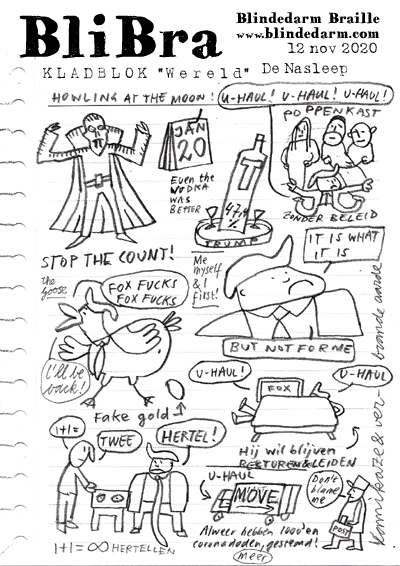 BliBra
Blindedarm Braille
www.blindedarm.com
12 nov 2020
KLADBLOK "Wereld" De Nasleep
HOWLING AT THE MOON!
U-HAUL! U-HAUL! U-HAUL!
POPPENKAST
JAN
20
Even the
WODKA
WAS
BETTER
T
47,4
%
TRUMP
ZONDER BELEID
STOP THE COUNT!
the goose
FOX FUCKS
FOX FUCKS
I'll be
back!
Fake gold →
Me
myself
& I
first!
IT IS WHAT
IT IS
BUT NOT FOR ME
Kamikaze & ver-brande aarde
U-HAUL
U-HAUL
FOX
Hij wil blijven
BESTUREN & LEIDEN
1+1=
TWEE
HERTEL!
1+1=∞ HERTELLEN
U-HAUL
MOVE
Don't
blame
me
POST
Alweer hebben 1000'en
coronadoden, gestemd!
meer